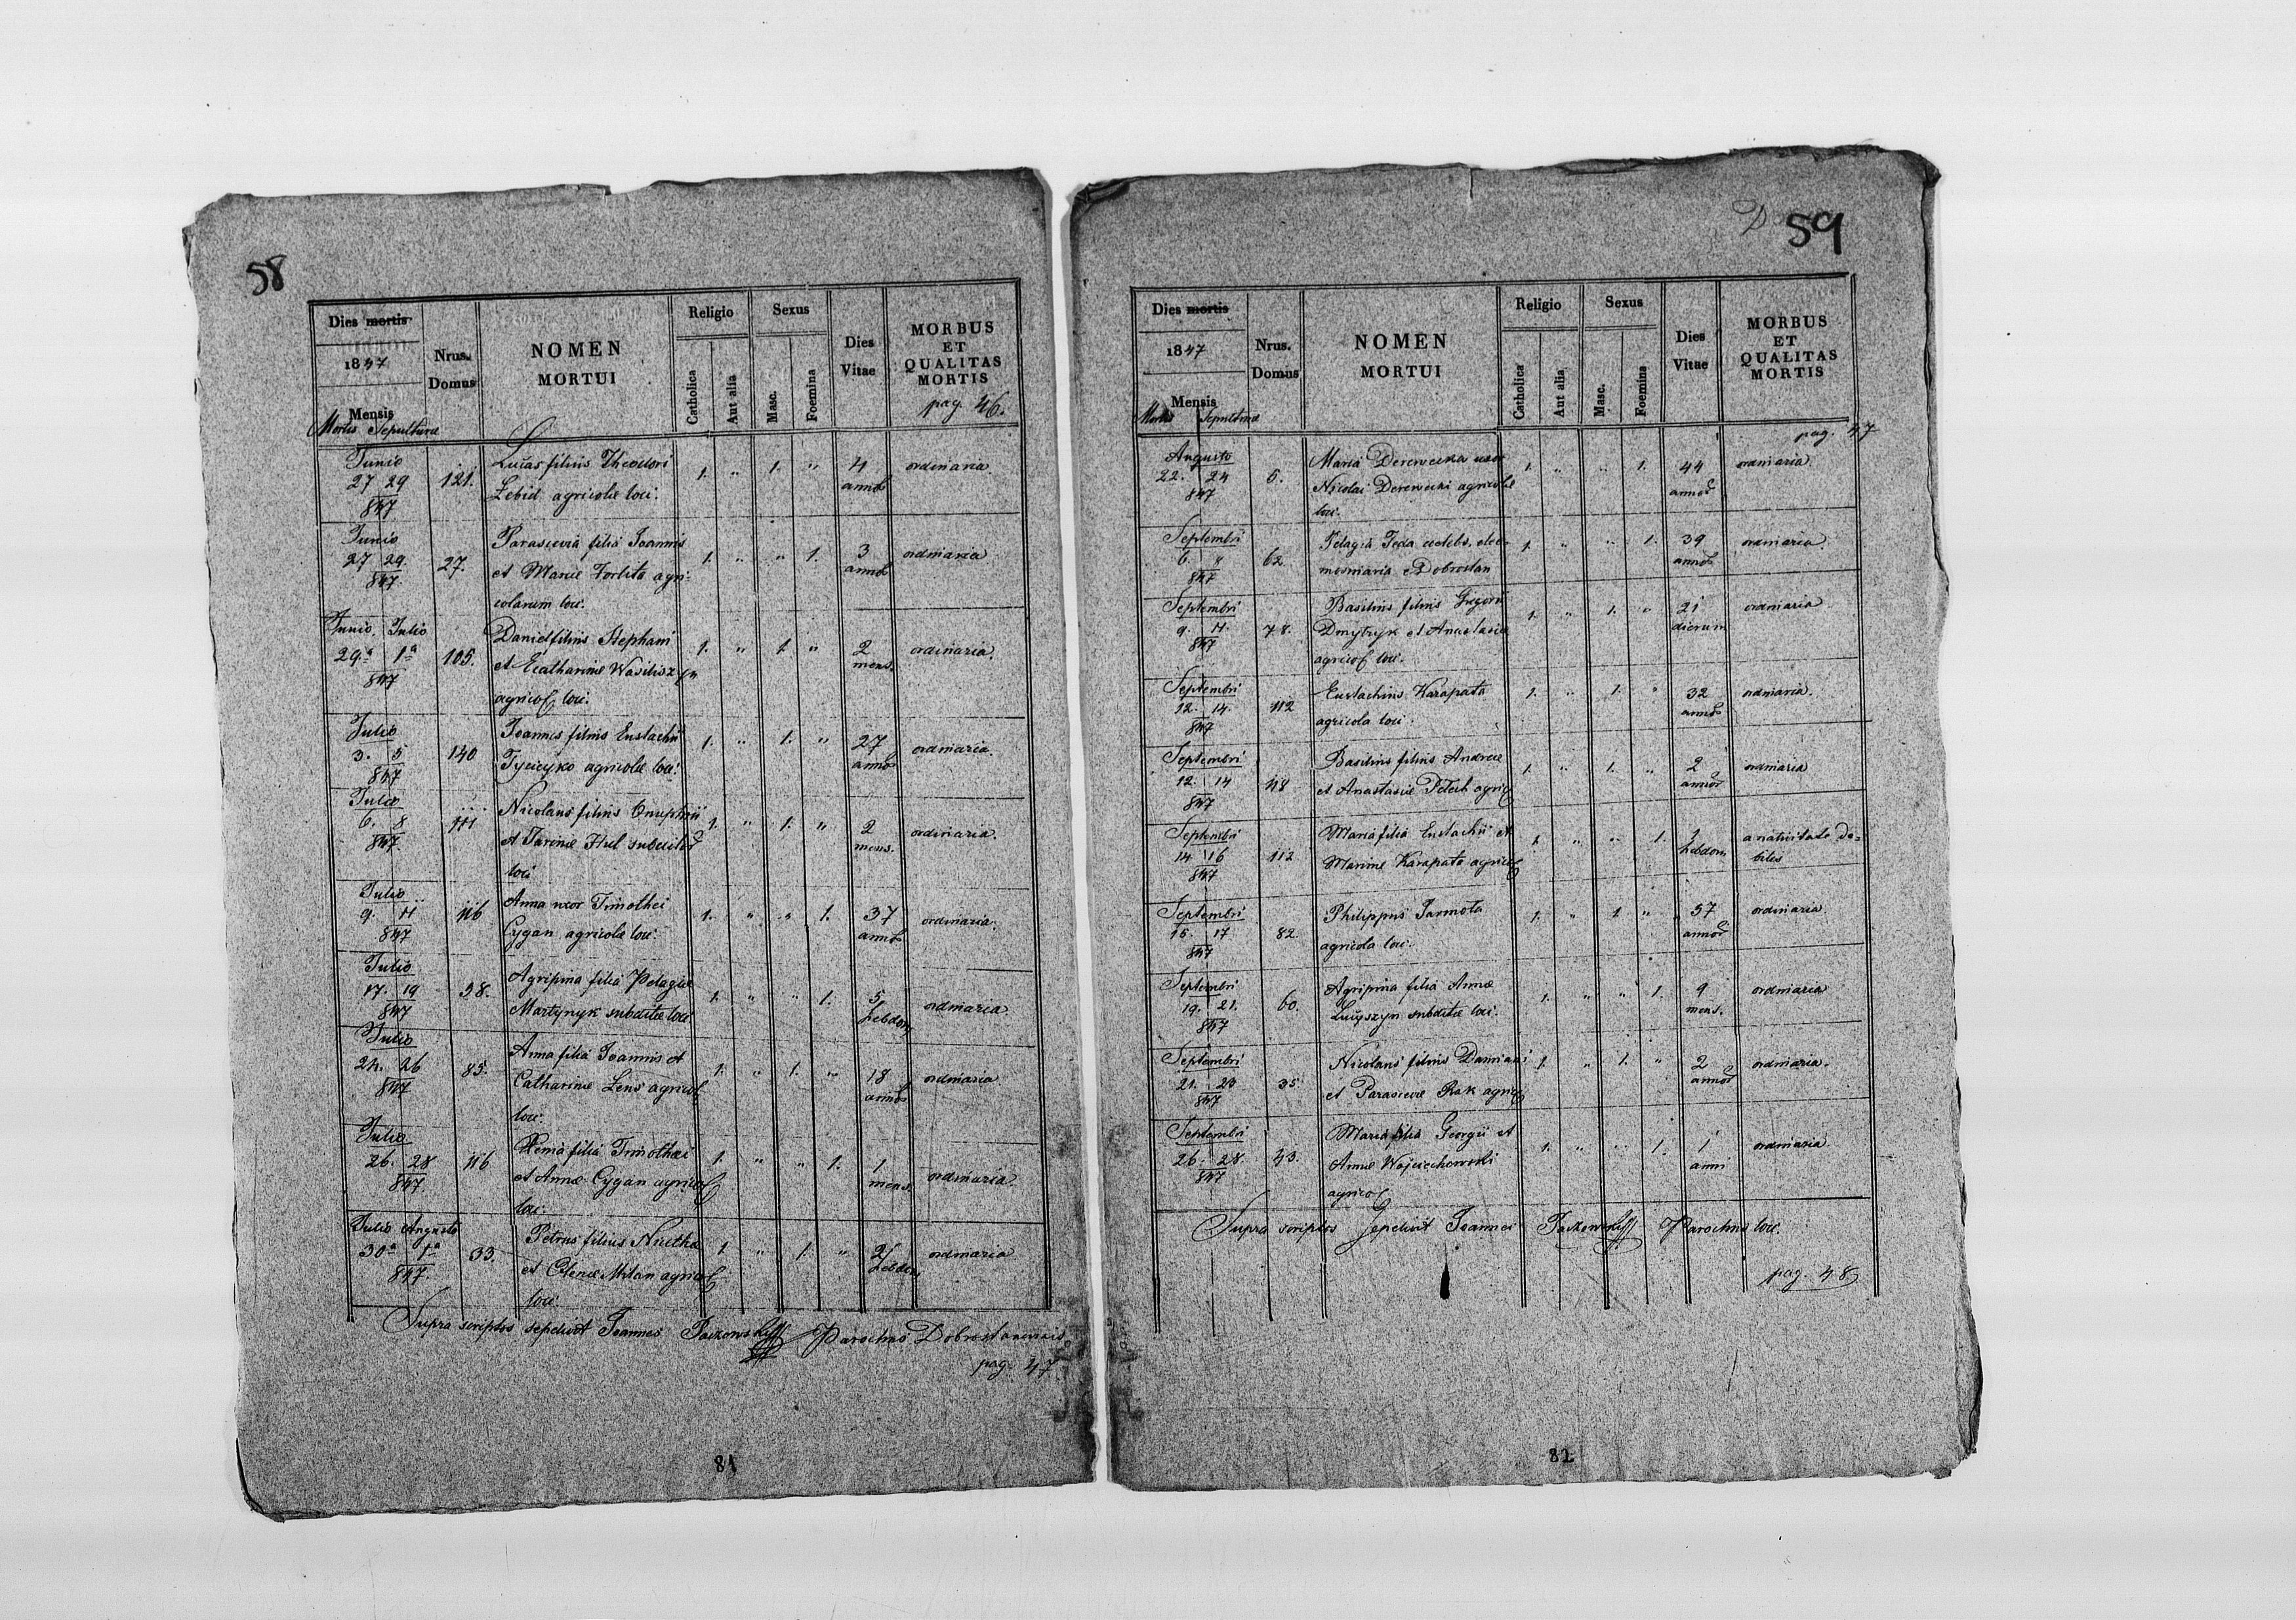 58
Dies mortis
1847
Mensis
Mortis Sepulturae
Nrus. Domus
NOMEN MORTUI
Religio
Catholica
Aut alia
Sexus
Masc.
Foemina
Dies Vitae
MORBUS ET QUALITAS MORTIS
pag. 46.
Junio 27 29 847 121. Lucas filius Theodori 1. " 1. " 4 annor ordinaria.
Lebid agricolae loci.
Junio 27 29. 847 27. Parascevia filia Joannis 1. " " 1. 3 annor ordinaria
et Mariae agri-
colarum loci.
Junio. Julio 29.a 1a 847 105. Daniel filius Stephani 1. " 1. " 2 mens. ordinaria.
et Catharinae Wasiliszyn
agricol loci.
Julio 3. 5 847 140 Joannes filius Eustachii 1. " 1. " 27 annor ordinaria.
agricolae loci.
Julio 6. 8 847 111 Nicolaus filius Onuphrii 1. " 1. " 2 mens. ordinaria.
et Hul subditor
loci
Julio 9. 11 847 116 Anna uxor Timothei 1. " " 1. 37 annor ordinaria.
Cygan agricolae loci.
Julio 17. 19 847 38. Agripina filia Pelagiae 1. " " 1. 5 hebdom ordinaria.
Martynyk subditae loci
Julio 24. 26 847 85. Anna filia Joannis et 1. " 1. " 18 annor ordinaria
Catharinae Lens agricol
loci.
Julio 26. 28 847 116 Xenia filia Timothei 1. " " 1. 1 mens. ordinaria.
et Annae Cygan agricol
loci.
Julio Augusto 30a 1a 847. 33. Petrus filius 1. " 1. " 2 hebdom ordinaria
et Milan agricol
loci.
Supra scriptos sepelivit Joannes Paczowsky Parochus Dobrostanensis
pag. 47.
81
59
Dies mortis
1847
Mensis
Mortis Sepulturae
Nrus. Domus
NOMEN MORTUI
Religio
Catholica
Aut alia
Sexus
Masc.
Foemina
Dies Vitae
MORBUS ET QUALITAS MORTIS
pag. 47
Augusto 22. 24 847 6. Maria Derewecka uxor 1. " " 1. 44 annor ordinaria
Nicolai Derewecki agricolae
loci.
Septembri 6. " 847 62 Pelagia Feda caelebs, elee- 1. " " 1. 39 annor ordinaria.
mosinaria e Dobrostan
Septembri 9. 11. 847 78. Basilius filius Gregorii 1. " 1. " 21 dierum ordinaria
Dmytryk et Anastasiae
agricol loci.
Septembri 12. 14. 847 112 Eustachius Karapata 1. " 1. " 32 annor ordinaria.
agricola loci.
Septembri 12. 14 847 48 Basilius filius Andreae 1. " 1. " 2 annor ordinaria
et Anastasiae Petech agricol
Septembri 14 16 847 112 Maria filia Eustachii et 1. " " 1. 1 hebdom a nativitate de-
bilis
Marinae Karapata agricol
Septembri 15. 17 847 82. Philippus Jarmola 1. " 1. " 57 annor ordinaria.
agricola loci.
Septembri 19. 21. 847 60. Agripina filia Annae 1. " " 1. 9 mens. ordinaria
Lucyszyn subditae loci.
Septembri 21. 23 847 35 Nicolaus filius Damiani 1. " 1. " 2 annor ordinaria.
et Parasceviae Rak agricol
Septembri 26. 28. 847 43. Maria filia Georgii et 1. " " 1. 1 anni ordinaria
Annae Wojciechowski
agricol
Supra scriptos sepelivit Joannes Paczowsky Parochus loci.
pag. 48
82